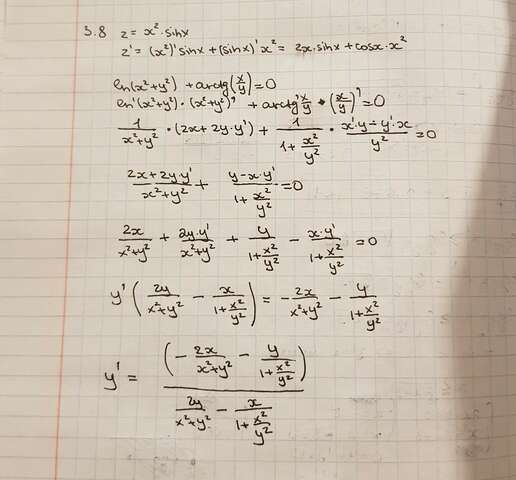 3.8 z = x² · sinx
z' = (x²)' sinx + (sinx)' x² = 2x · sinx + cosx · x²
ln(x²+y²) + arctg(x/y) = 0
ln'(x²+y²) · (x²+y²)' + arctg' x/y · (x/y)' = 0
1/(x²+y²) · (2x + 2y · y') + 1/(1 + x²/y²) · (x' · y - y' · x)/y² = 0
(2x + 2y · y')/(x²+y²) + (y - x · y')/(1 + x²/y²) = 0
2x/(x²+y²) + 2y · y'/(x²+y²) + y/(1 + x²/y²) - x · y'/(1 + x²/y²) = 0
y' (2y/(x²+y²) - x/(1 + x²/y²)) = - 2x/(x²+y²) - y/(1 + x²/y²)
y' = (- 2x/(x²+y²) - y/(1 + x²/y²)) / (2y/(x²+y²) - x/(1 + x²/y²))